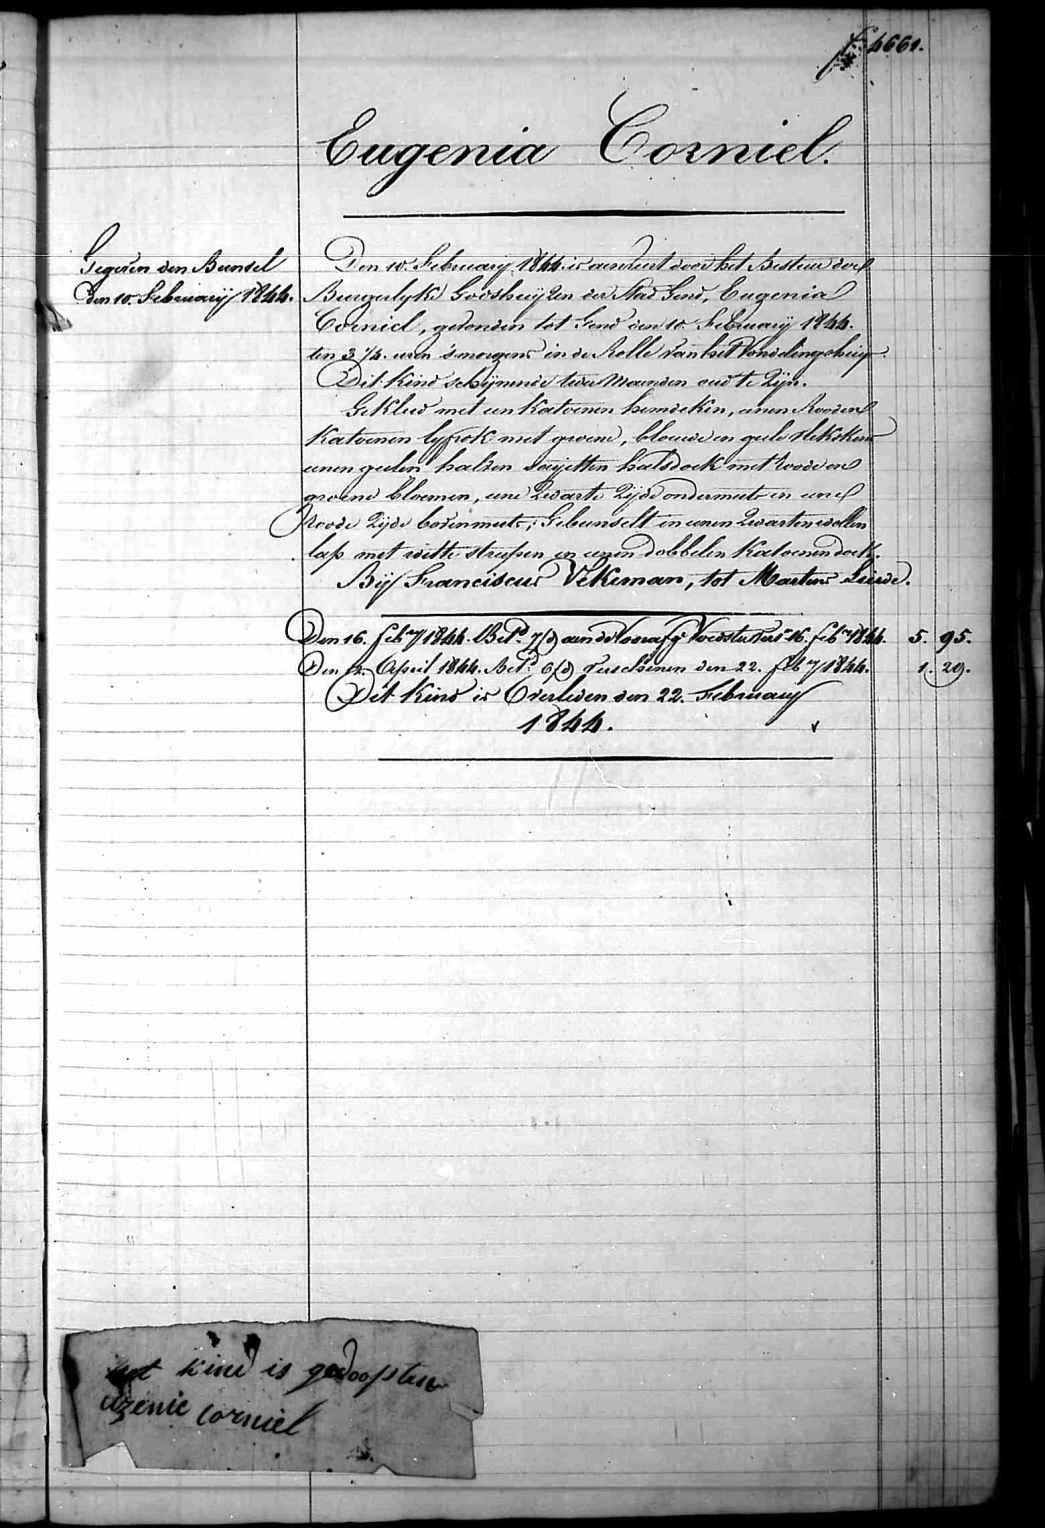 f° 4661.
Eugenia Corniel.
Gegeven den Bunsel
den 10. February 1844.
Den 10. February 1844. is aenveert door het Bestuer der
Burgerlyke Godshuyzen der Stad Gend, Eugenia
Corniel, gevonden tot Gend den 10. February 1844.
ten 3 1/4. uren 's morgens in de Rolle van het Vondelingshuys.
Dit kind schynende twee Maenden oud te zyn.
Gekleed met een katoenen hemdeken, eenen Rooden
Katoenen lyfrok met groene, blauwe en geele vlekskens
eenen geelen halven sayetten halsdoek met roode en
groene bloemen, eene Zwarte Zyde ondermuts en eene
Roode Zyde bovenmuts; Gebunselt in eenen Zwarten wollen
lap met witte streepen en eenen dobbelen Katoenen doek.
Bij Franciscus Vekeman, tot Martens Lierde.
Den 16. feb.ry 1844. Bet.d 7/d aen de Voorafg: Voedster tot 16. feb.ry 1844. 5. 95.
Den 12. April 1844. Bet.d 6/d verschenen den 22. feb.ry 1844. 1. 29.
Dit Kind is Overleden den 22. February
1844.
het kind is gedoopt en
ugenie corniel